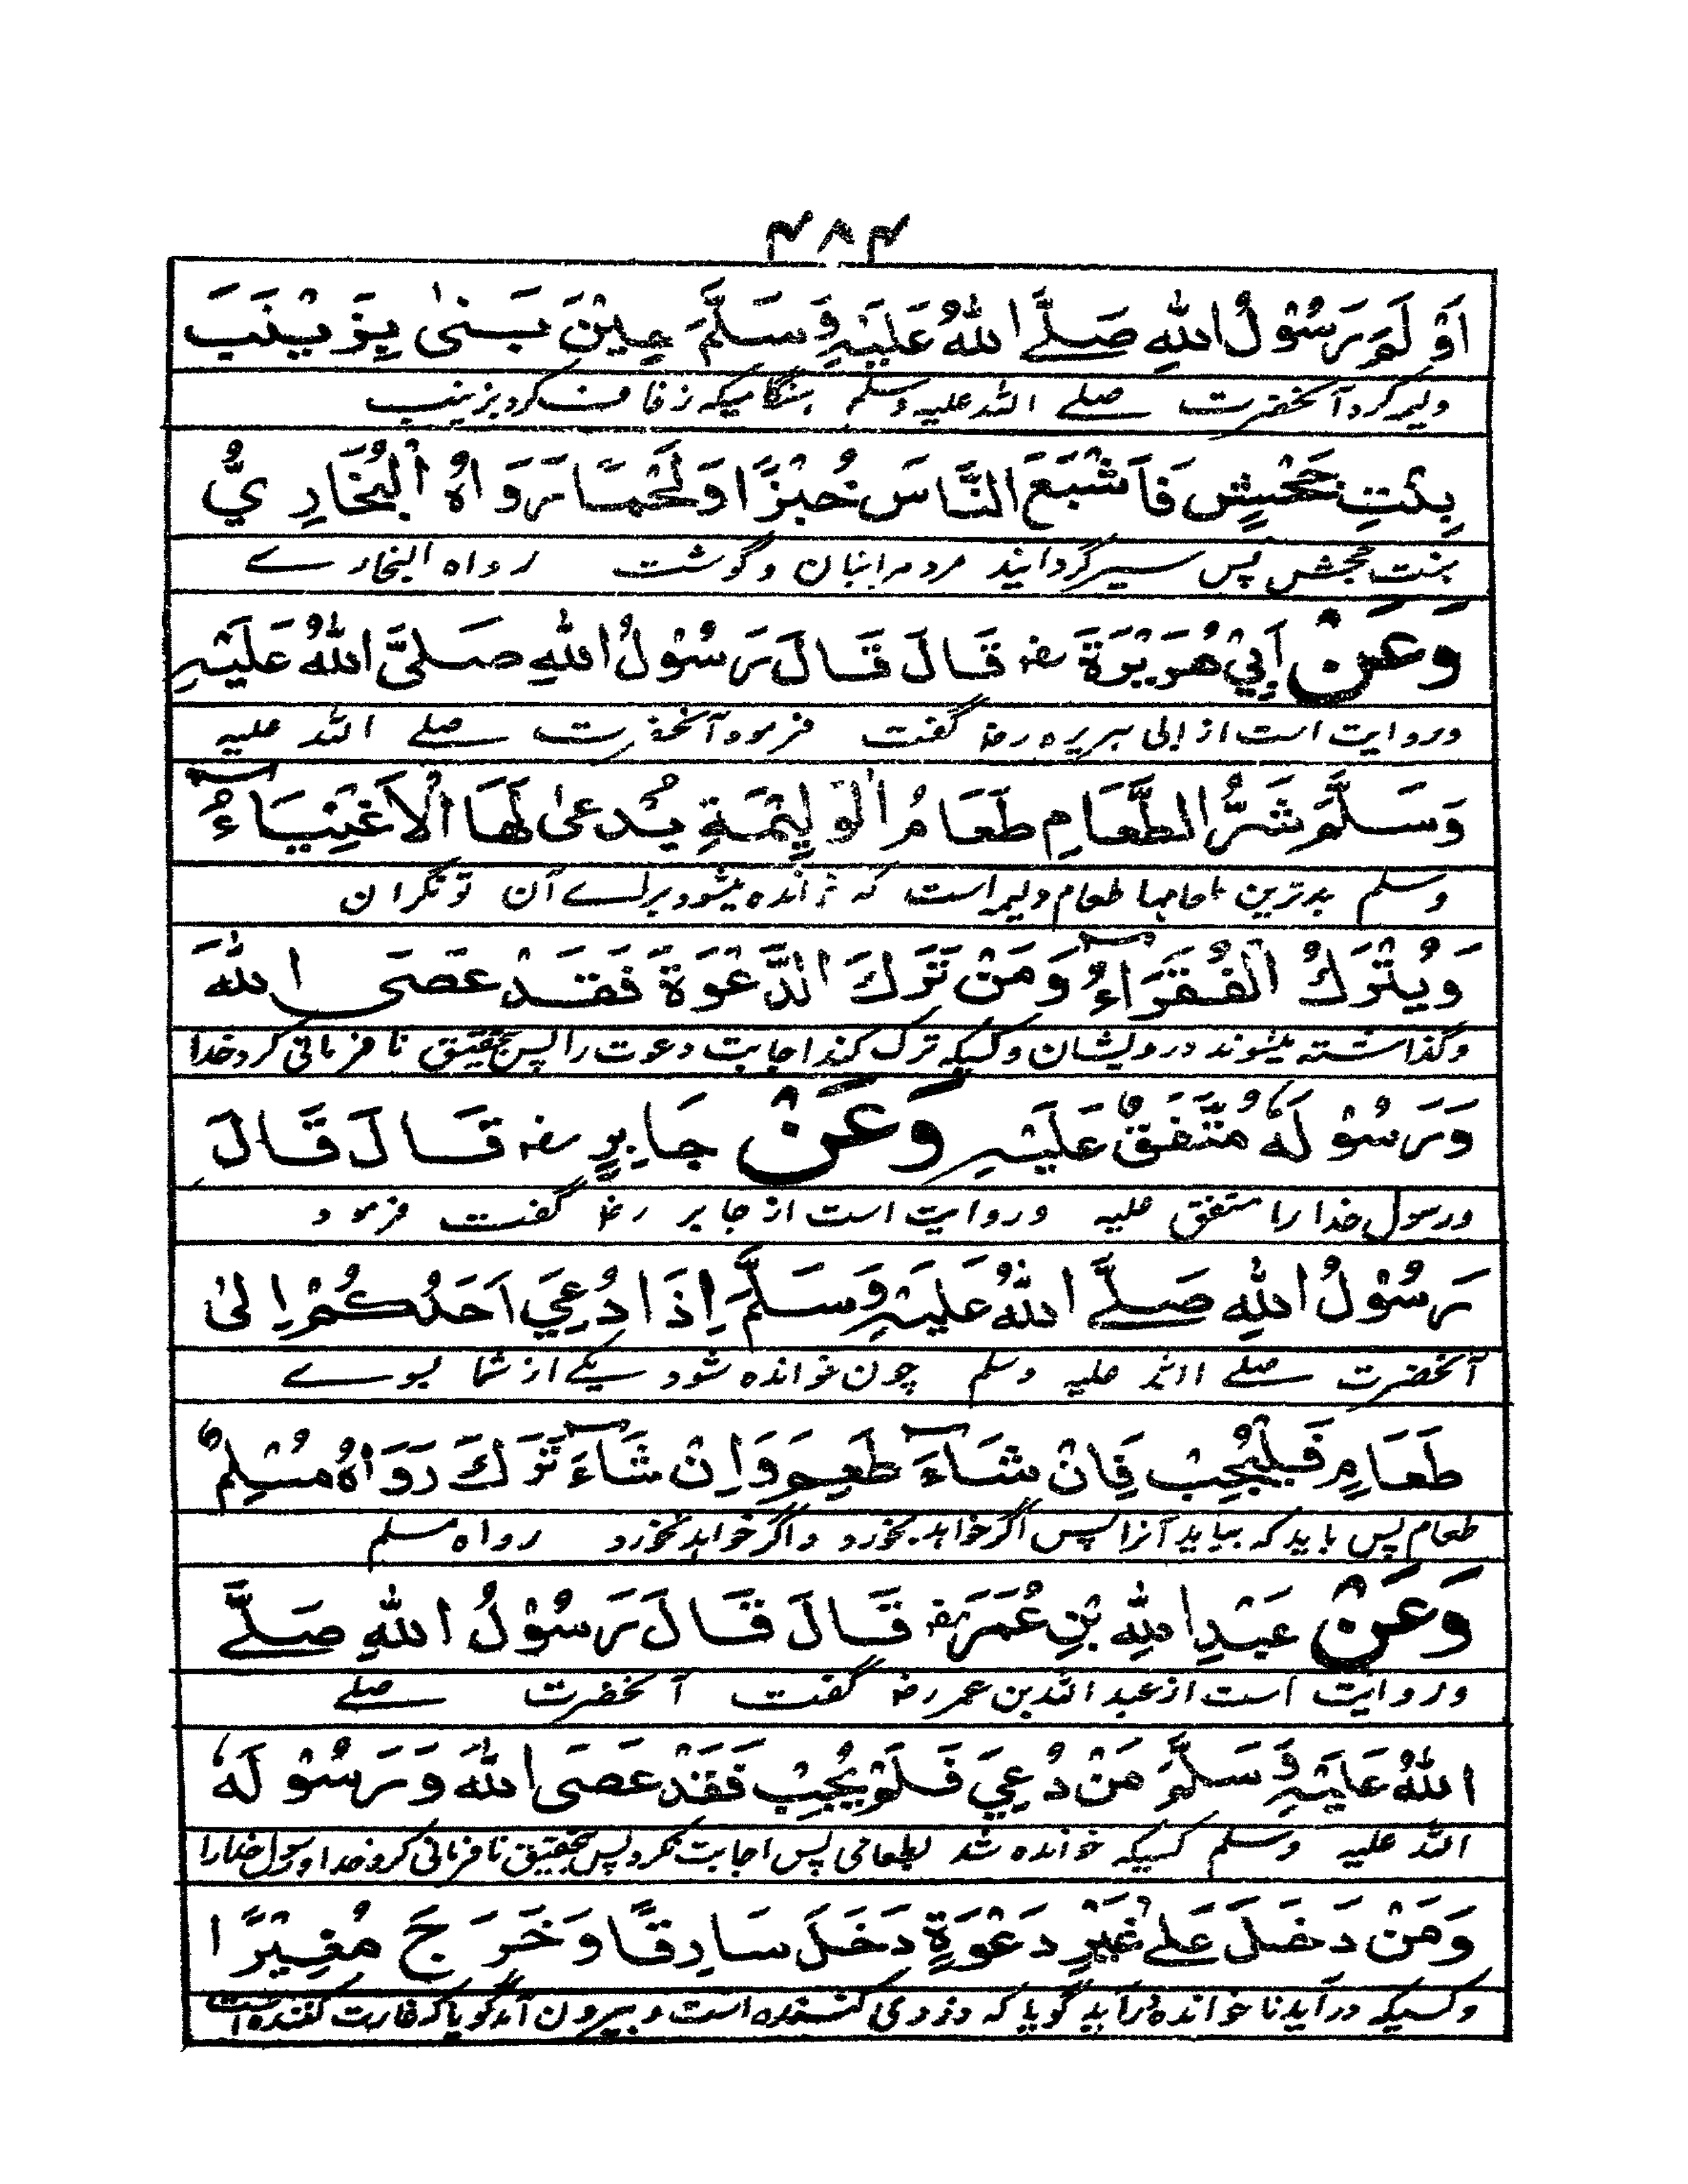 ۴۸۴
اَوْلَمَ رَسُوْلُ اللهِ صَلَّے اللهُ عَلَيْهِ وَسَلَّمَ حِيْنَ بَنىٰ بِزَيْنَبَ
ولیمہ کرد آنحضرت صلے اللہ علیہ وسلم ہنگامیکہ زفاف کرد بزینب
بِنْتِ جَحْشٍ فَاَشْبَعَ النَّاسَ خُبْزًا وَلَحْمًا رَوَاهُ الْبُخَارِيُّ
بنت حجش پس سیر گردانید مردم را بنان و گوشت رواہ البخارے
وَعَنْ اَبِيْ هُرَيْرَةَ رضہ قَالَ قَالَ رَسُوْلُ اللهِ صَلىَّ اللهُ عَلَيْهِ
و روایت است از ابی ہریرہ رضہ گفت فرمود آنحضرت صلے اللہ علیہ
وَسَلَّمَ شَرُّ الطَّعَامِ طَعَامُ الْوَلِيْمَةِ يُدْعىٰ لَهَا الْاَغْنِيَاءُ
وسلم بدترین طعامہا طعام ولیمہ است کہ خواندہ میشود براے آن تونگران
وَيُتْرَكُ الْفُقَرَاءُ وَمَنْ تَرَكَ الدَّعْوَةَ فَقَدْ عَصَى اللهَ
و گذاشتہ میشوند درویشان و کسیکہ ترک کند اجابت دعوت را پس بتحقیق نافرمانی کرد خدا
وَرَسُوْلَهُ مُتَّفَقٌ عَلَيْهِ وَعَنْ جَابِرٍ رضہ قَالَ قَالَ
و رسول خدا را متفق علیہ و روایت است از جابر رضہ گفت فرمود
رَسُوْلُ اللهِ صَلَّے اللهُ عَلَيْهِ وَسَلَّمَ اِذَا دُعِيَ اَحَدُكُمْ اِلىٰ
آنحضرت صلے اللہ علیہ وسلم چون خواندہ شود یکے از شما بسوے
طَعَامٍ فَلْيُجِبْ فَاِنْ شَاءَ طَعِمَ وَاِنْ شَاءَ تَرَكَ رَوَاهُ مُسْلِمٌ
طعام پس باید کہ بیاید آنرا پس اگر خواہد بخورد و اگر خواہد نخورد رواہ مسلم
وَعَنْ عَبْدِ اللهِ بْنِ عُمَرَ رضہ قَالَ قَالَ رَسُوْلُ اللهِ صَلَّے
و روایت است از عبد اللہ بن عمر رضہ گفت آنحضرت صلے
اللهُ عَلَيْهِ وَسَلَّمَ مَنْ دُعِيَ فَلَمْ يُجِبْ فَقَدْ عَصَى اللهَ وَرَسُوْلَهُ
اللہ علیہ وسلم کسیکہ خواندہ شد بطعامی پس اجابت نکرد پس بتحقیق نافرمانی کرد خدا و رسول خدا را
وَمَنْ دَخَلَ عَلٰے غَيْرِ دَعْوَةٍ دَخَلَ سَارِقًا وَخَرَجَ مُغِيْرًا
و کسیکہ در آید ناخواندہ در آید گویا کہ دزدی کنندہ است و بیرون آمد گویا کہ غارت کنندہ است